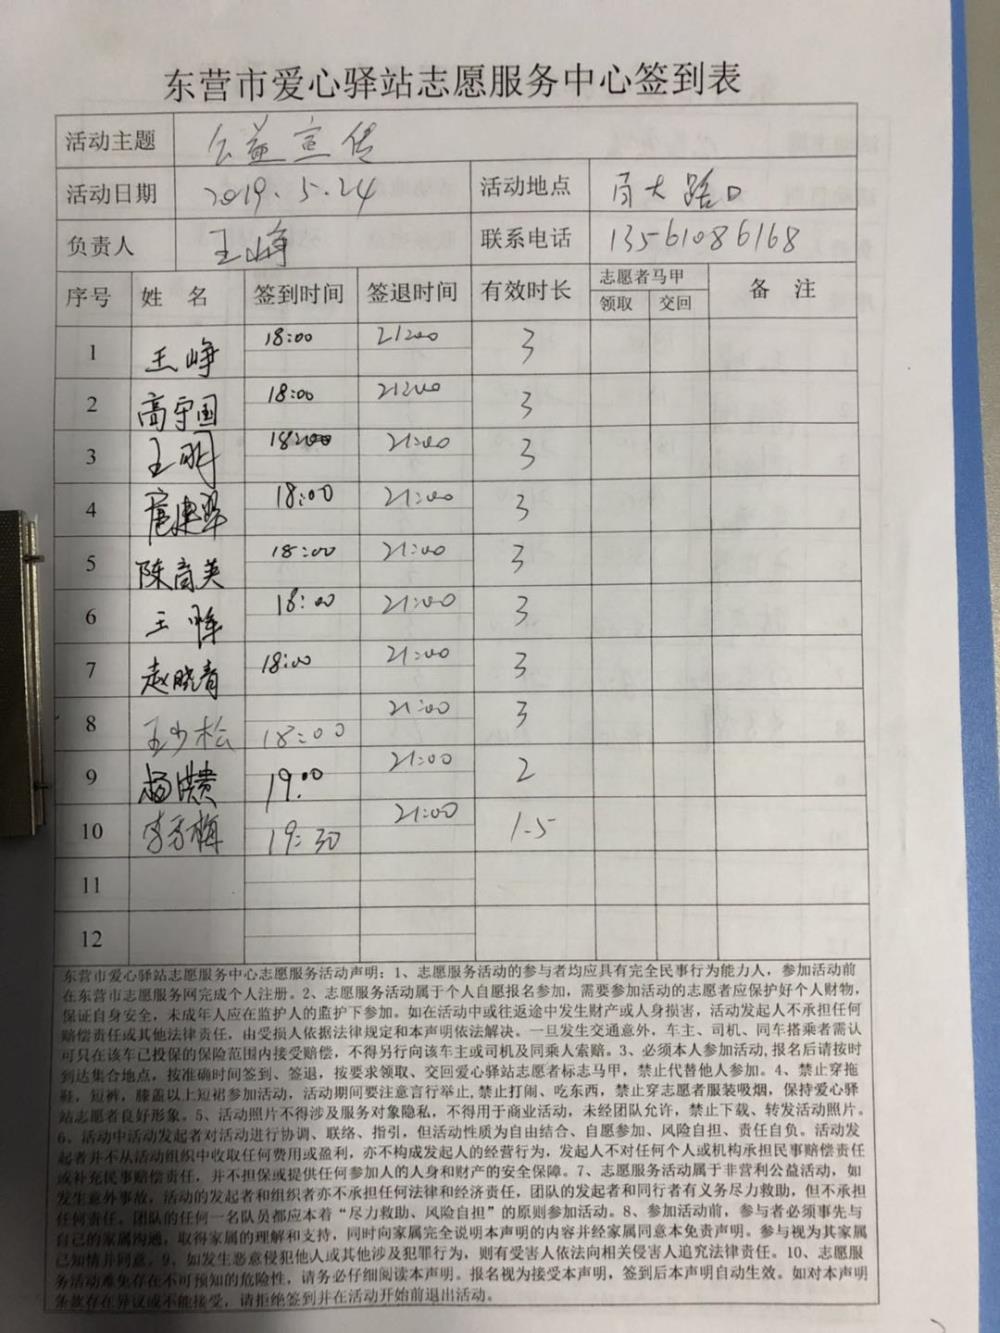 东营市爱心驿站志愿服务中心签到表
活动主题 公益宣传
活动日期 2019.5.24 活动地点 百大路口
负责人 王峥 联系电话 13561086168
序号 姓 名 签到时间 签退时间 有效时长 志愿者马甲 备 注
领取 交回
1 王峥 18:00 21:00 3
2 高宇国 18:00 21:00 3
3 王明 18:00 21:00 3
4 18:00 21:00 3
5 陈育美 18:00 21:00 3
6 王 18:00 21:00 3
7 赵晓青 18:00 21:00 3
8 王少松 18:00 21:00 3
9 杨洪贵 19:00 21:00 2
10 李秀梅 19:30 21:00 1.5
11
12
东营市爱心驿站志愿服务中心志愿服务活动声明：1、志愿服务活动的参与者均应具有完全民事行为能力人，参加活动前
在东营市志愿服务网完成个人注册。2、志愿服务活动属于个人自愿报名参加，需要参加活动的志愿者应保护好个人财物，
保证自身安全，未成年人应在监护人的监护下参加。如在活动中或往返途中发生财产或人身损害，活动发起人不承担任何
赔偿责任或其他法律责任，由受损人依据法律规定和本声明依法解决。一旦发生交通意外，车主、司机、同车搭乘者需认
可只在该车已投保的保险范围内接受赔偿，不得另行向该车主或司机及同乘人索赔。3、必须本人参加活动,报名后请按时
到达集合地点，按准确时间签到、签退，按要求领取、交回爱心驿站志愿者标志马甲，禁止代替他人参加。4、禁止穿拖
鞋，短裤，膝盖以上短裙参加活动，活动期间要注意言行举止,禁止打闹、吃东西，禁止穿志愿者服装吸烟，保持爱心驿
站志愿者良好形象。5、活动照片不得涉及服务对象隐私，不得用于商业活动，未经团队允许，禁止下载、转发活动照片。
6、活动中活动发起者对活动进行协调、联络、指引，但活动性质为自由结合、自愿参加、风险自担、责任自负。活动发
起者并不从活动组织中收取任何费用或盈利，亦不构成发起人的经营行为，发起人不对任何个人或机构承担民事赔偿责任
或补充民事赔偿责任，并不担保或提供任何参加人的人身和财产的安全保障。7、志愿服务活动属于非营利公益活动，如
发生意外事故，活动的发起者和组织者亦不承担任何法律和经济责任，团队的发起者和同行者有义务尽力救助，但不承担
任何责任。团队的任何一名队员都应本着“尽力救助、风险自担”的原则参加活动。8、参加活动前，参与者必须事先与
自己的家属沟通，取得家属的理解和支持，同时向家属完全说明本声明的内容并经家属同意本免责声明。参与视为其家属
已知情并同意。9、如发生恶意侵犯他人或其他涉及犯罪行为，则有受害人依法向相关侵害人追究法律责任。10、志愿服
务活动难免存在不可预知的危险性，请务必仔细阅读本声明。报名视为接受本声明，签到后本声明自动生效。如对本声明
条款存在异议或不能接受，请拒绝签到并在活动开始前退出活动。